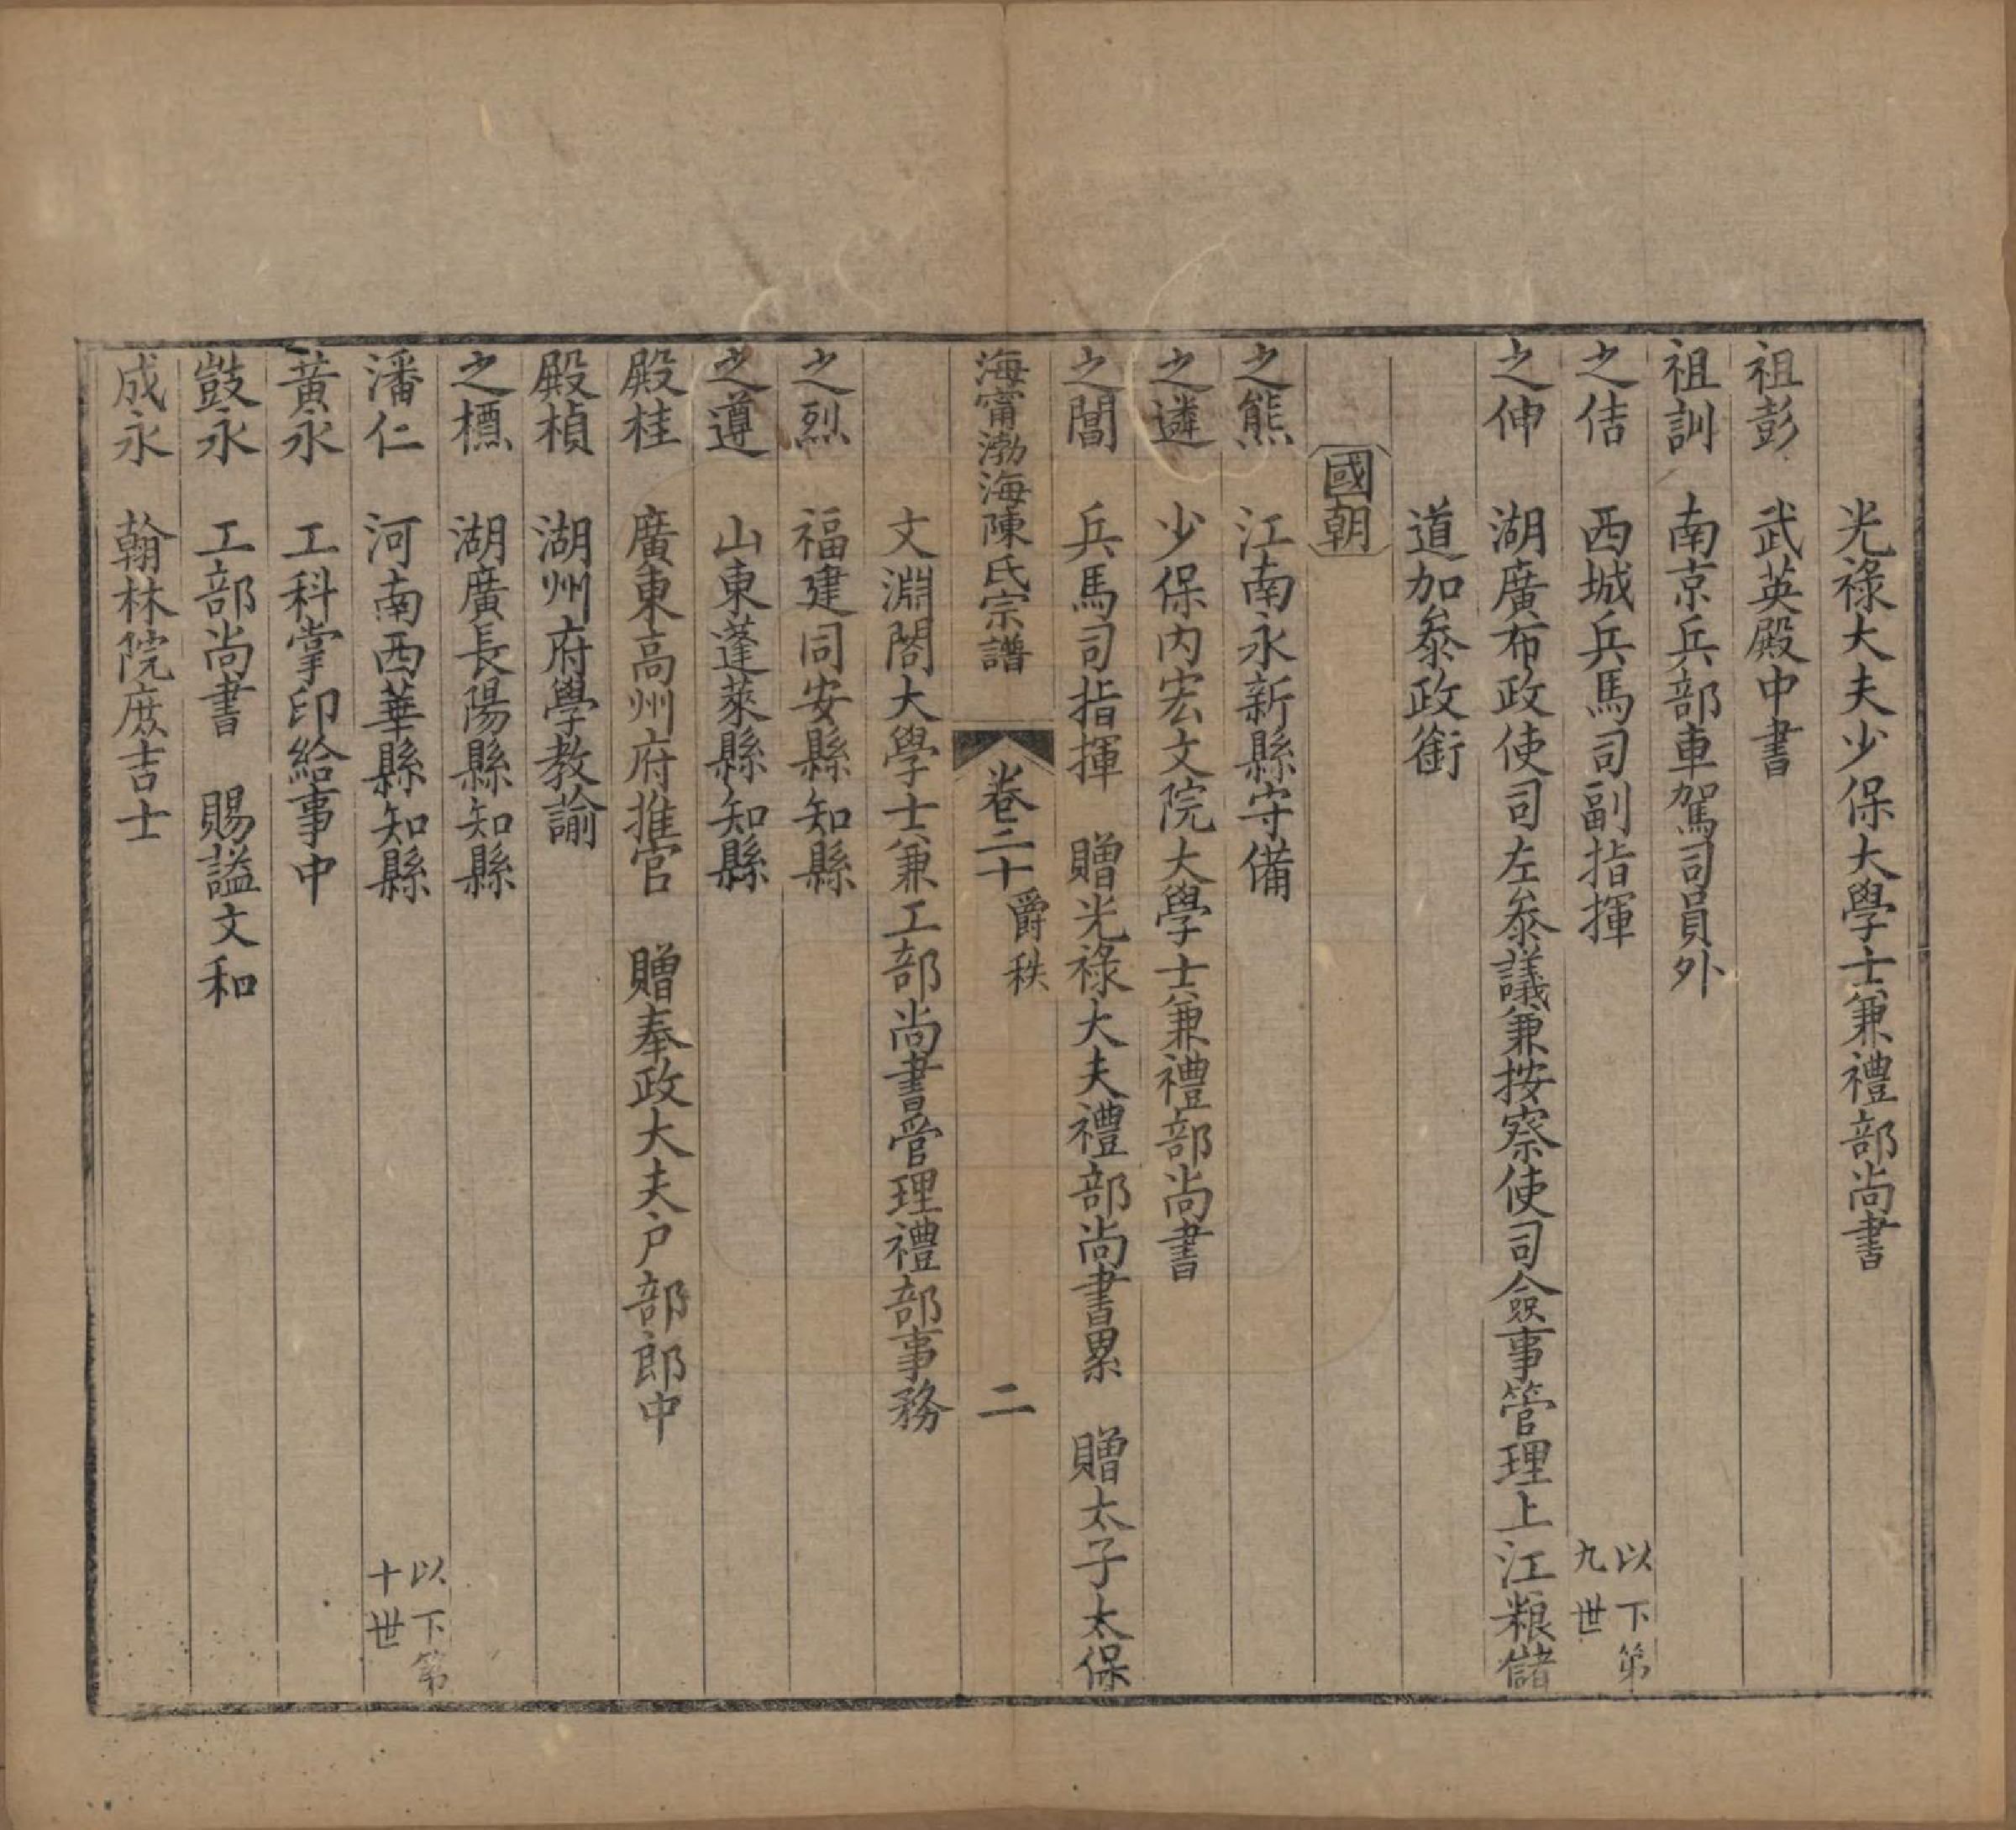 光祿大夫少保大學士兼禮部尚書
祖彭　武英殿中書
祖訓　南京兵部車駕司員外
之佶　西城兵馬司副指揮　以下第九世
之伸　湖廣布政使司左叅議兼按察使司僉事管理上江粮儲
道加叅政銜
國朝
之熊　江南永新縣守備
之遴　少保内宏文院大學士兼禮部尚書
之闇　兵馬司指揮　贈光祿大夫禮部尚書累　贈太子太保
海甯渤海陳氏宗譜　卷二十　爵秩　二
文淵閣大學士兼工部尚書管理禮部事務
之烈　福建同安縣知縣
之遵　山東蓬萊縣知縣
殿桂　廣東高州府推官　贈奉政大夫戶部郎中
殿楨　湖州府學教諭
之標　湖廣長陽縣知縣
潘仁　河南西華縣知縣　以下第十世
黃永　工科掌印給事中
敱永　工部尚書　賜謚文和
成永　翰林院庶吉士